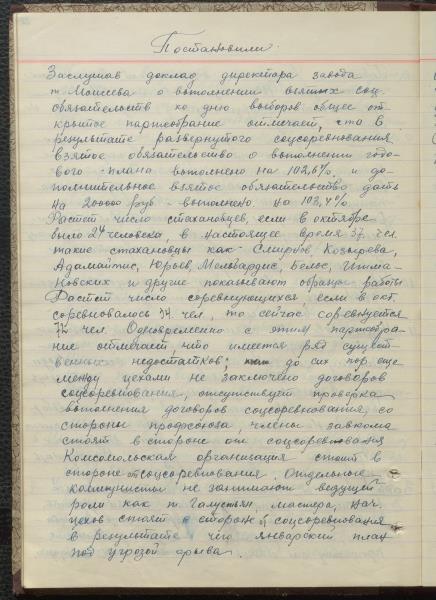 Постановили:
Заслушав доклад директора завода
т. Моисеева о выполнении взятых соц.
обязательств ко дню выборов общее от-
крытое партсобрание отмечает, что в
результате развернутого соцсоревнования
взятое обязательство о выполнении годо-
вого плана выполнено на 102,6%, и до-
полнительное взятое обязательство дать
на 200000 руб - выполнено на 103,4%
Растет число стахановцев, если в октябре
было 24 человека в настоящее время 37 чел.
такие стахановцы как - Смирнов, Козырева,
Адамайтис, Юрьев, Белюс,
и другие показывают образцы работы
Растет число соревнующихся, если в окт.
соревновалось чел, то сейчас соревнуется
чел. Одновременно с этим партсобра-
ние отмечает что имеется ряд сущест-
венных недостатков; до сих пор еще
между цехами не заключено договоров
соцсоревнования, отсутствует проверка
выполнения договоров соцсоревнования, со
стороны профсоюза, члены завкома
стоят в стороне от соцсоревнования
Комсомольская организация стоит в
стороне от соцсоревнования. Отдельные
коммунисты не занимают ведущей
роли как т. Галустян, мастера, нач.
цехов стоят в стороне соцсоревнования
в результате чего январский план
под угрозой срыва.